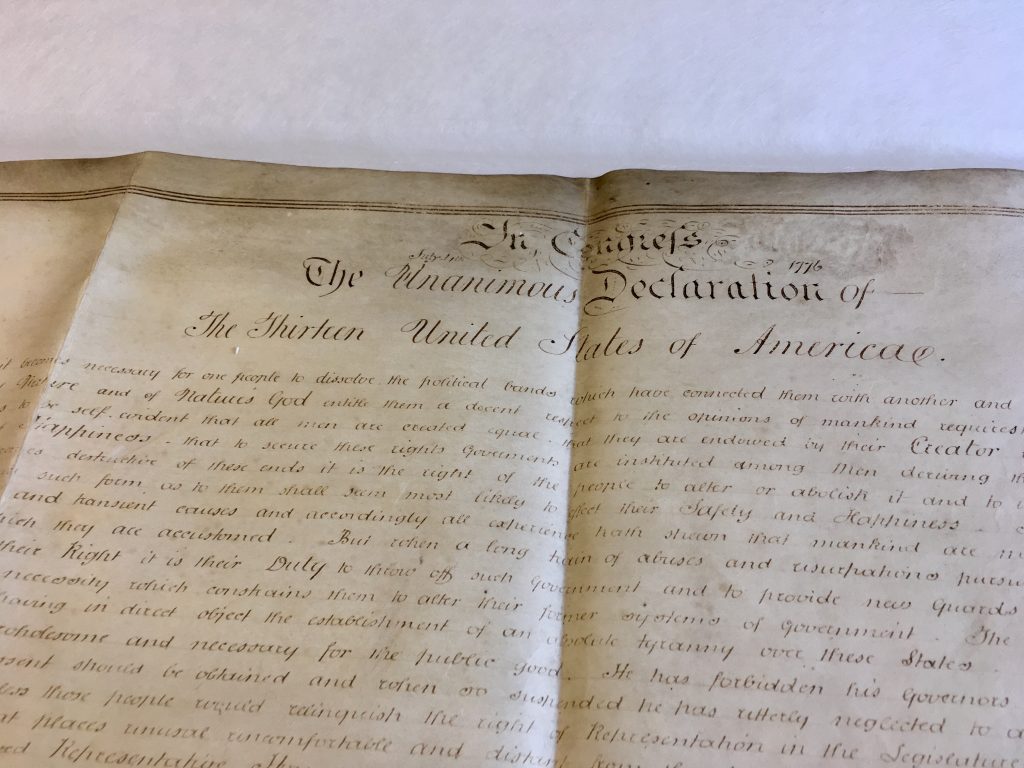 In Congress
1776
The Unanimous Declaration of
The Thirteen United States of America.
becomes necessary for one people to dissolve the political bands which have connected them with another and
Nature and of Natures God entitle them a decent respect to the opinions of mankind requires
to be self evident that all men are created equal that they are endowed by their Creator
Happiness - that to secure these rights Goverments are instituted among Men deriving
destructive of these ends it is the right of the people to alter or abolish it and to
such form as to them shall seem most likely to effect their Safety and Happiness.
and transient causes and accordingly all experience hath shewn that mankind are
which they are accustomed. But when a long train of abuses and usurpations
their Right it is their Duty to throw off such Government and to provide new Guards
necessity which constrains them to alter their former systems of Government. The
having in direct object the establishment of an absolute tyranny over these States.
wholesome and necessary for the public good. He has forbidden his Governors
should be obtained and when so suspended he has utterly neglected to
those people would relinquish the right of Representation in the Legislature
places unusual uncomfortable and distant from the
Representative